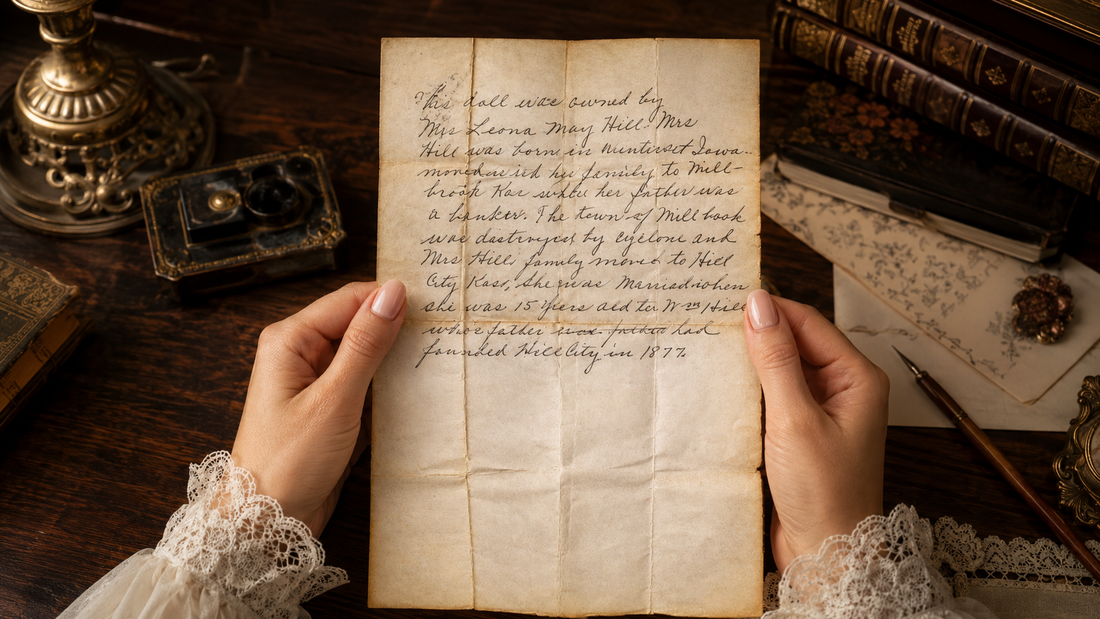 This doll was owned by
Mrs Leona May Hill. Mrs
Hill was born in Winterset Iowa.
moved with her family to Mill-
brook Kas where her father was
a banker. The town of Millbook
was dastroyed by cyclone and
Mrs Hill, family moved to Hill
City Kas, She was Married when
she was 15 Years old to Wm Hill
who's father was father had
founded Hill City in 1877